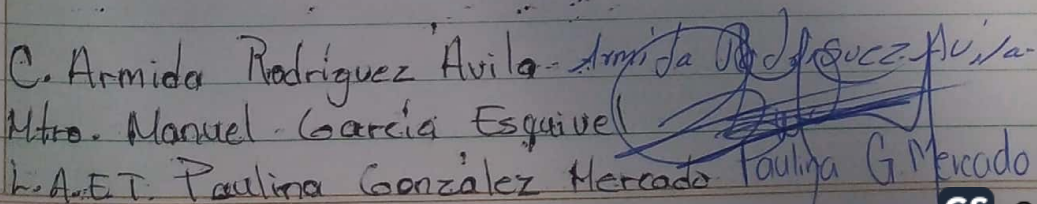 C. Armida Rodríguez Ávila - Armida Rodríguez Ávila-
Mtro. Manuel García Esquivel
L.A.E.T. Paulina González Mercado Paulina G. Mercado